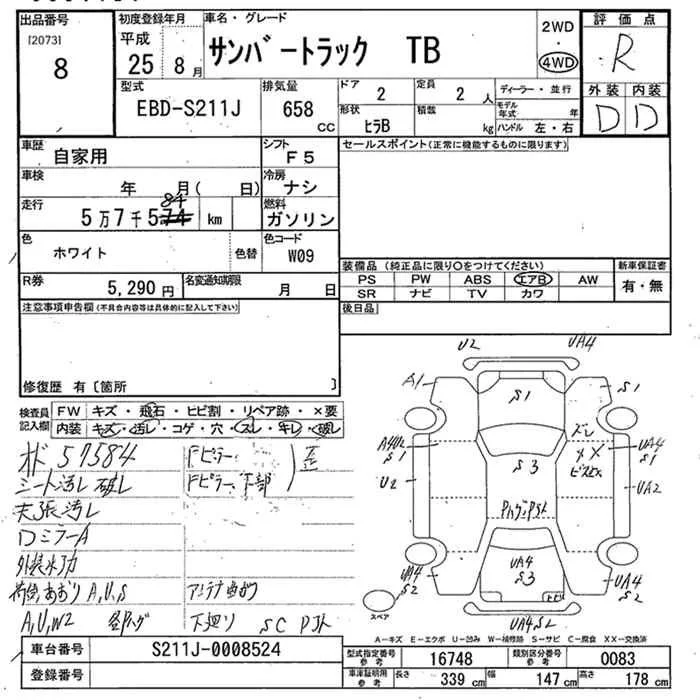 出品番号
[2073]
8
初度登録年月
平成
25 8 月
車名・グレード
サンバートラック TB
2WD
・
4WD
評価点
R
外装 内装
D D
型式
EBD-S211J
排気量
658
cc
ドア
2
定員
2 人
形状
ヒラB
積載
kg
ディーラー・並行
モデル年式 年
ハンドル 左・右
車歴
自家用
シフト
F5
セールスポイント(正常に機能するものに限ります)
車検
年 月( 日)
冷房
ナシ
走行
84
5万7千574 km
燃料
ガソリン
色
ホワイト
色替
色コード
W09
R券
5,290 円
名変通知期限
月 日
装備品(純正品に限り〇をつけてください)
新車保証書
PS PW ABS エアB AW
SR ナビ TV カワ
有・無
後日品
注意事項申告欄(不具合内容等は具体的に記入して下さい)
修復歴 有〔箇所 〕
検査員記入欄
FW キズ・飛石・ヒビ割・リペア跡・×要
内装 キズ・汚レ・コゲ・穴・スレ・キレ・破レ
57584
シート汚レ 破レ
天張汚レ
ロミラーA
Fピラー
Fピラー下部
歪
A,U,S
アンテナ曲り
A,U,W2
下廻り SC
U2 UA4
A1 S1 S1
ズレ
XX
S1 UA4 S1
U2 S3 UA2
UA4 S2 UA4 S3 UA4 S2
スペア
UA4S2
A−キズ E−エクボ U−凹み W−補修跡 S−サビ C−腐食 XX−交換済
車台番号
S211J-0008524
登録番号
型式指定番号 参考
16748
類別区分番号 参考
0083
車庫証明用 参考
長さ 339 cm 幅 147 cm 高さ 178 cm